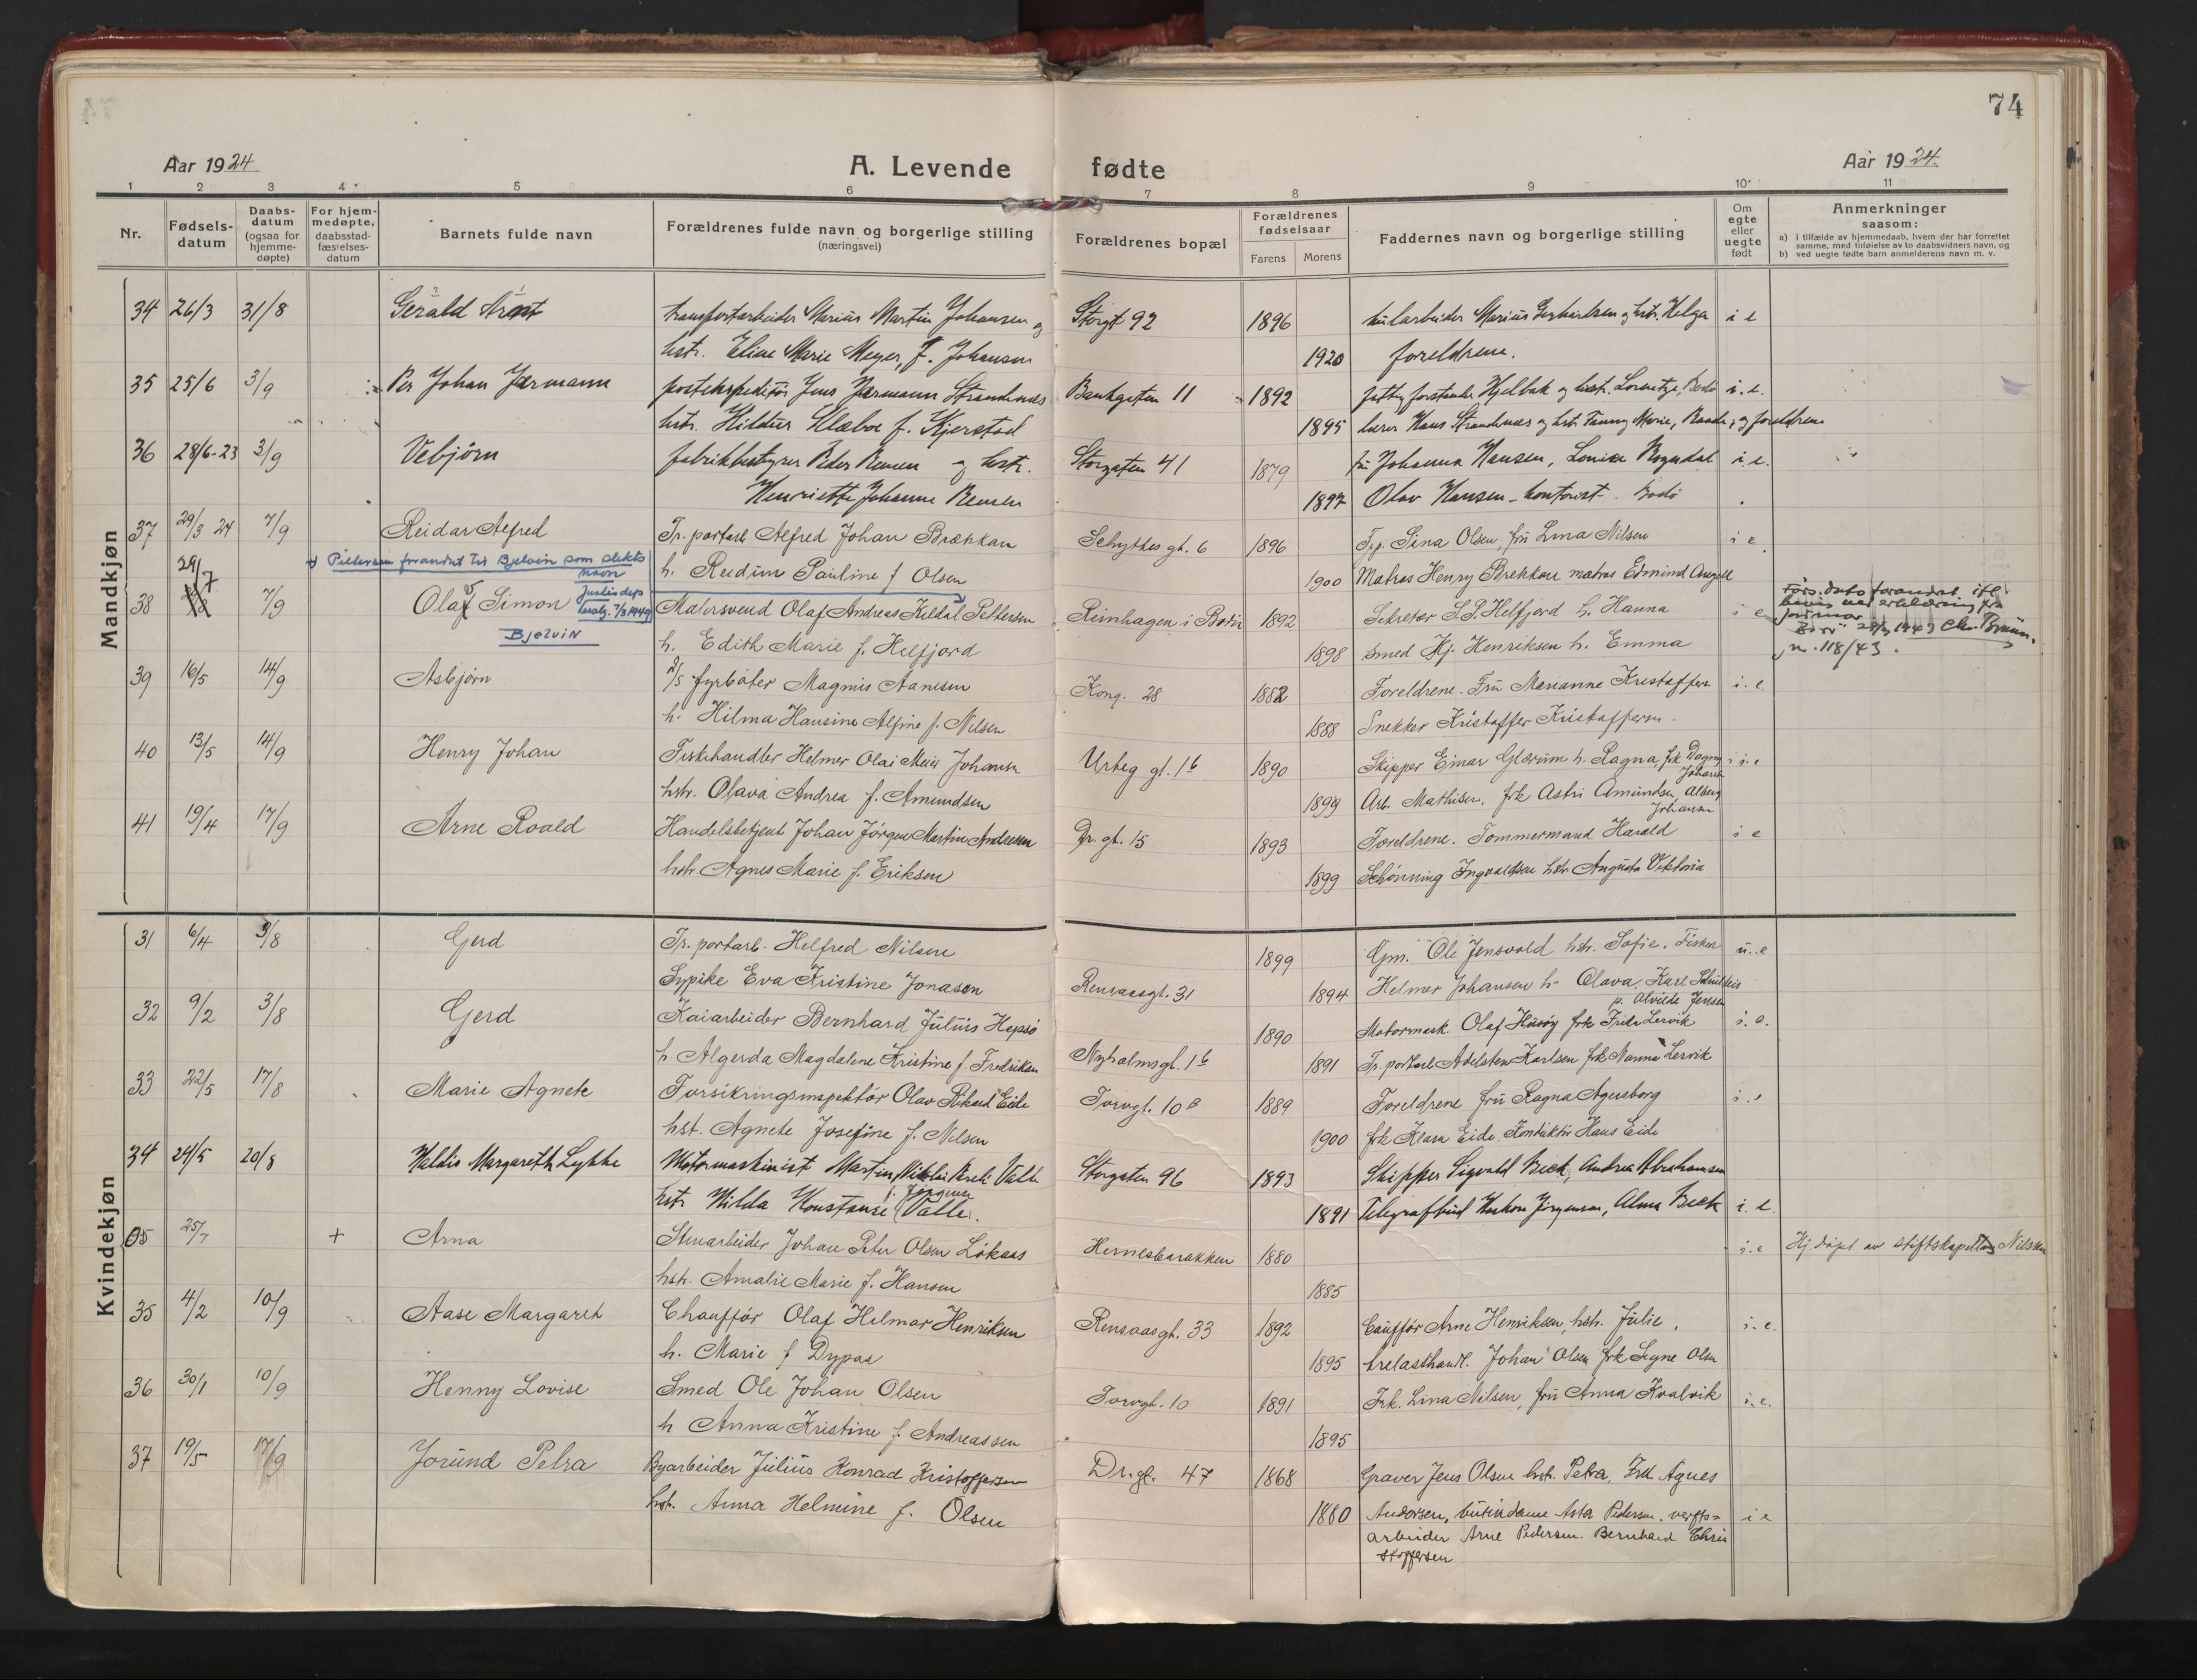 74
Aar 1924
A. Levende fødte
Aar 1924.
1 2 3 4 5 6 7 8 9 10 11
Nr.
Fødsels-datum
Daabs-datum (ogsaa for hjemme-døpte)
For hjem-medøpte, daabsstad-fæstelses-datum
Barnets fulde navn
Forældrenes fulde navn og borgerlige stilling (næringsvei)
Forældrenes bopæl
Forældrenes fødselsaar
Farens Morens
Faddernes navn og borgerlige stilling
Om egte eller uegte født
Anmerkninger saasom:
a) I tilfælde av hjemmedaab, hvem der har forrettet samme, med tilføielse av to daabsvidners navn, og
b) ved uegte fødte barn anmelderens navn m. v.
Mandkjøn
34 26/3 31/8 Gerald Arnt transportarbeider Marius Martin Johansen og Storgt 92 1896 Marius Gerhardsen og hstr. Helga i e
hstr. Eline Marie Meyer, f. Johansen 1920 foreldrene.
35 25/6 3/9 Per Johan Jærmann postekspeditør Jens Jærmann Strandenæs Bankgaten 11 1892 Hjelbak og hustr. Bodø i. e.
hstr. Hildur Klæboe f. Kjerstad 1895 lærer Hans Strandenæs og hst. Fanny Marie, og foreldrene
36 28/6-23 3/9 Vebjørn fabrikbestyrer Peder og hustr. Storgaten 41 1879 fru Johanna Hansen, i. e.
Henriette Johanne 1897 Olav Hansen - kontorist - Bodø
37 29/3 24 7/9 Reidar Alfred Tr. portarb Alfred Johan Brækkan Schyttes gt. 6 1896 Frk. Sina Olsen, fru Lina Nilsen i e.
+ Pettersen forandret til Bjelvin som slekts navn
h. Reidun Pauline f Olsen 1900 Matros Henry Brekkan matros Edmind Angell
38 29/7 7/9 Olaf Simon Malersvend Olaf Andreas Kildal Pettersen Reinhagen i Bodin 1892 Sekretær S. P. Helfjord h. Hanna i e
Justis dep 7/3 1949
Bjelvin
h. Edith Marie f. Helfjord 1898 Smed Hj. Henriksen h. Emma
Føds. dato forandret ifl. bevis ved erklæring fra jormor Bodø 1943 Chr. Bruun. jn. 118/43.
39 16/5 14/9 Asbjørn D/S fyrbøter Magnus Aanesen Kong. 28 1882 Foreldrene. Fru Marianne Kristoffers i. e.
h. Hilma Hansine Alfine f. Nilsen 1888 Snekker Kristoffer Kristoffersen.
40 13/5 14/9 Henry Johan Fiskehandler Helmer Olai Meier Johansen Urbeg gt. 1b 1890 Skipper Einar Glærum h. Ragna, frk Dagny Johansen i. e
hstr. Olava Andrea f. Amundsen 1899 Arb. Mathisen, frk Astri Amundsen, Alberg Johansen
41 19/4 17/9 Arne Roald Handelsbetjent Johan Jörgen Martin Andresen Dr. gt. 15 1893 Foreldrene. Tømmermand Harald i e
hstr Agnes Marie f. Eriksen 1899 Schönning Ingvaldsen hstr Augusta Viktoria
Kvindekjøn
31 6/4 3/8 Gerd Tr. portarb. Helfred Nilsen 1899 Gm. Ole Jensvold hstr. Sofie. Fisker u. e
Sypike Eva Kristine Jonasen Rensaasgt. 31 1894 Helmer Johansen h. Olava, Karl p. Alvilde Jensen
32 9/2 3/8 Gerd Kaiarbeider Bernhard Julius Hepsø 1890 Motormask. Olaf Husøy frk Frida Lervik i. e.
h. Algerda Magdalene Kristine f. Fredriksen Nyholmsgt. 1b 1891 Tr. portarb Adelsten Karlsen frk Nanna Lervik
33 22/5 17/8 Marie Agnete Forsikringsinspektør Olav Rikard Eide Torvgt. 10B 1889 Foreldrene fru Ragna Agersborg i. e
hst. Agnete Josefine f. Nilsen 1900 frk Klara Eide. Konduktør Hans Eide
34 24/5 20/8 Valdis Margareth Lykke Motormaskinist Martin Nikolai Valle Storgaten 96 1893 Skipper Sigvald Beck, Andrea Abrahamsen
hstr Hilda Konstanse f. Jörgensen (Valle). 1891 Telegrafbud Haakon Jörgensen, Alma Beck i. e.
35 25/7 + Arna Stenarbeider Johan Peter Olsen Løkaas Hernesbarakken 1880 i. e Hj. døpt av stiftskapellan Nilssen
hstr. Amalie Marie f. Hansen 1885
35 4/2 10/9 Aase Margaret Chauffør Olaf Helmar Henriksen Rensaasgt. 33 1892 Cauffør Arne Henriksen, hstr. Julie, i. e.
h. Marie f Dypaa 1895 trelasthandl. Johan Olsen frk Signe Olsen
36 30/1 10/9 Henny Lovise Smed Ole Johan Olsen Torvgt. 10 1891 Frk. Lina Nilsen, fru Anna Kvalvik i. e.
h Anna Kristine f. Andreassen 1895
37 19/5 17/9 Jorund Petra Byarbeider Julius Konrad Kristoffersen Dr. gt. 47 1868 Graver Jens Olsen hstr. Petra, Frk Agnes
hst. Anna Helmine f. Olsen 1880 Andersen, butikdame Asta Pedersen, verfts= i e
arbeider Arne Pedersen. Bernhard Chri
stoffersen